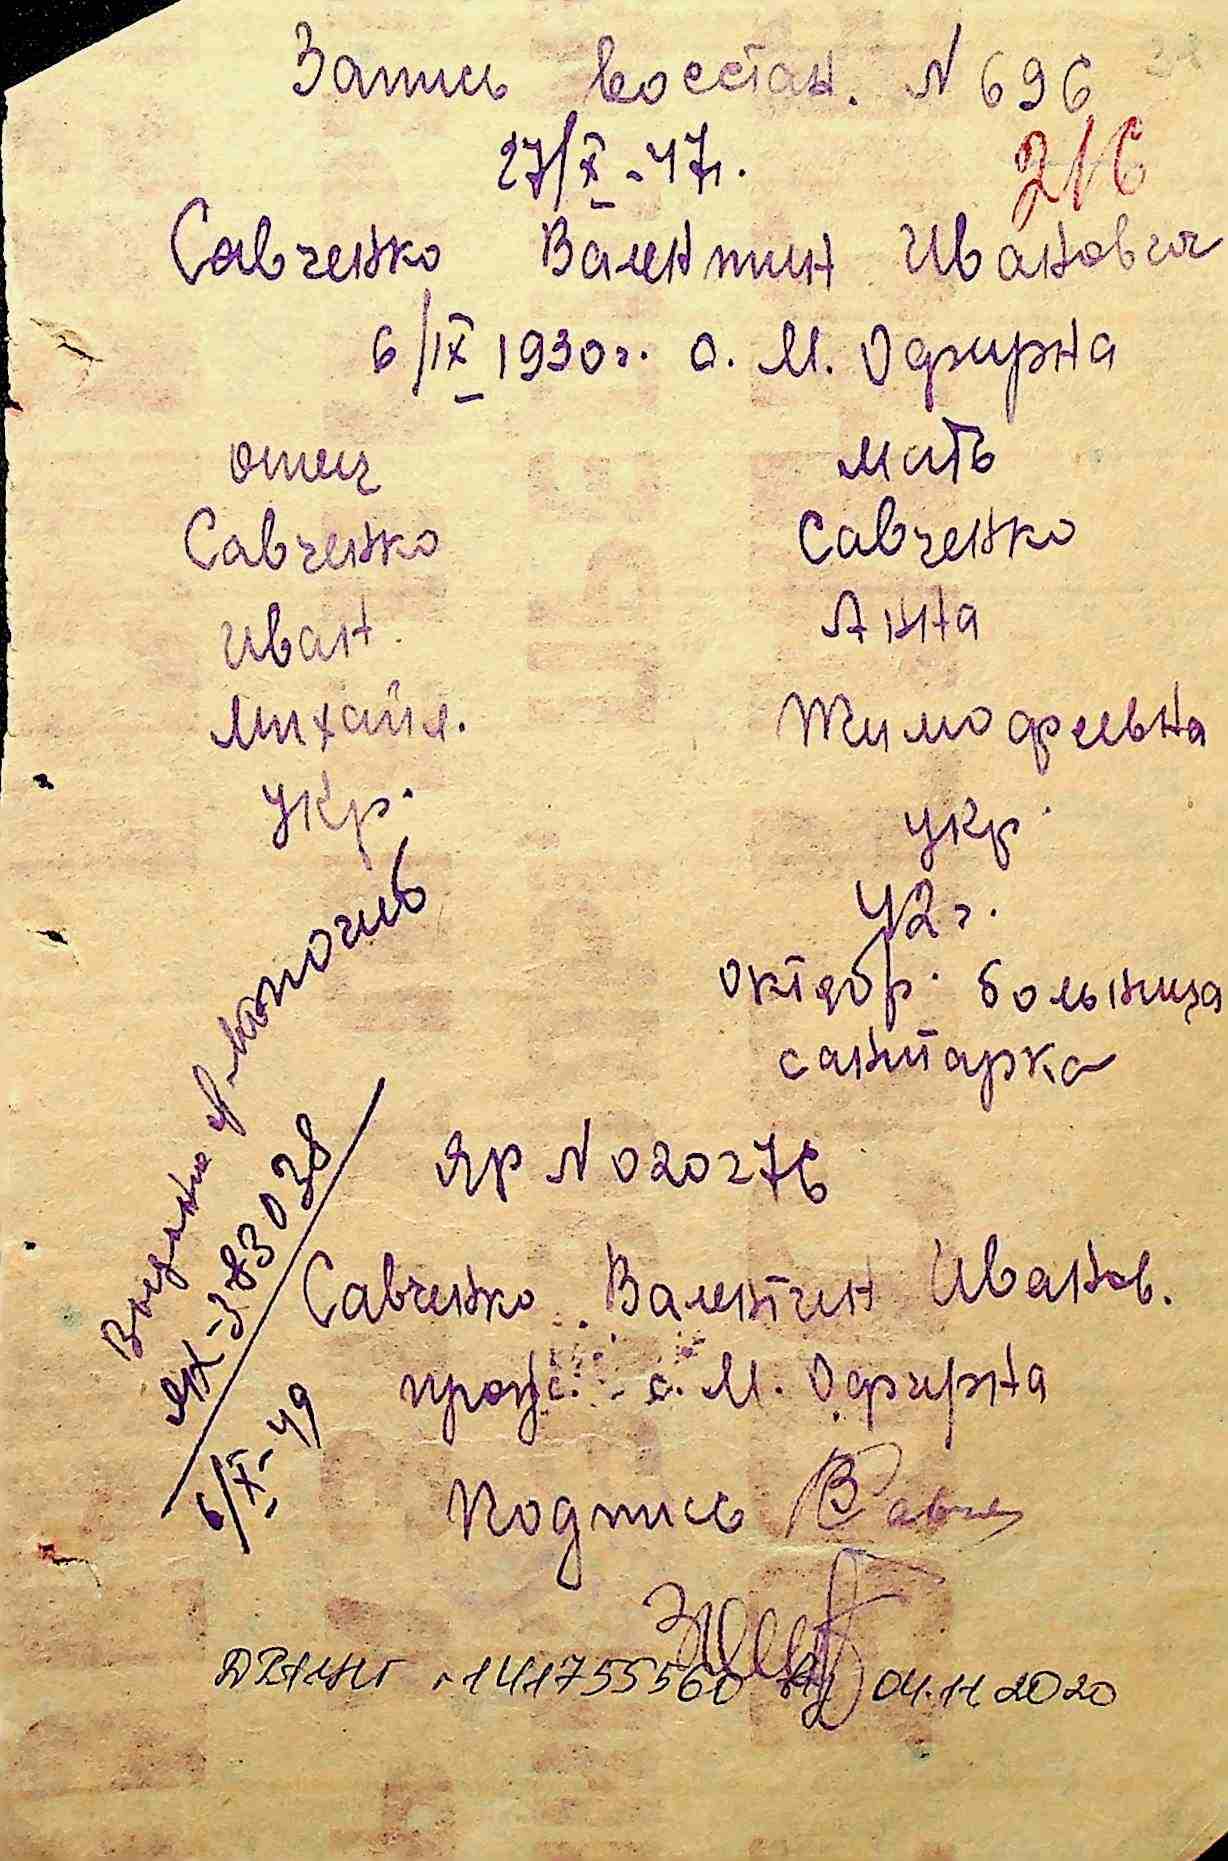 Запись восстан. N 696
27/X-47г.
216
Савченко Валентин Иванович
6/IX 1930г. с. М. Офирна
отец
мать
Савченко
Савченко
Иван
Анна
Михайл.
Тимофеевна
укр.
укр.
42г.
октябр. больница
санитарка
ЯР N 020276
Савченко Валентин Иванов.
прож. с. М. Офирна
Подпись
Выдано повторно
ЯХ-383038
6/X-49
141755560 04.11 2020